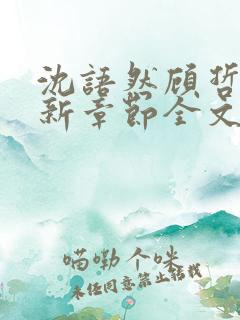 沈語然顾哲
新章節全文
喵嘞个咪
未经同意禁止转载